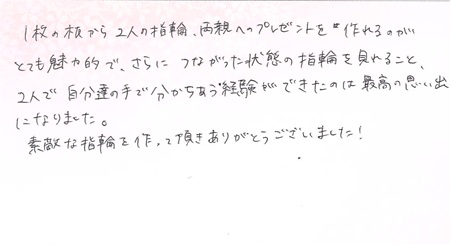 1枚の板から2人の指輪、両親へのプレゼントを作れるのが
とても魅力的で、さらに つながった状態の指輪を見れること、
2人で自分達の手で分かちあう経験ができたのは最高の思い出
になりました。
素敵な指輪を作って頂きありがとうございました！